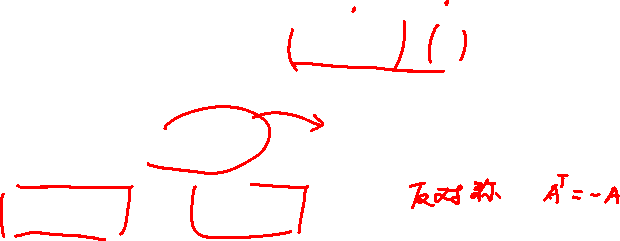 反对称 Aᵀ=-A